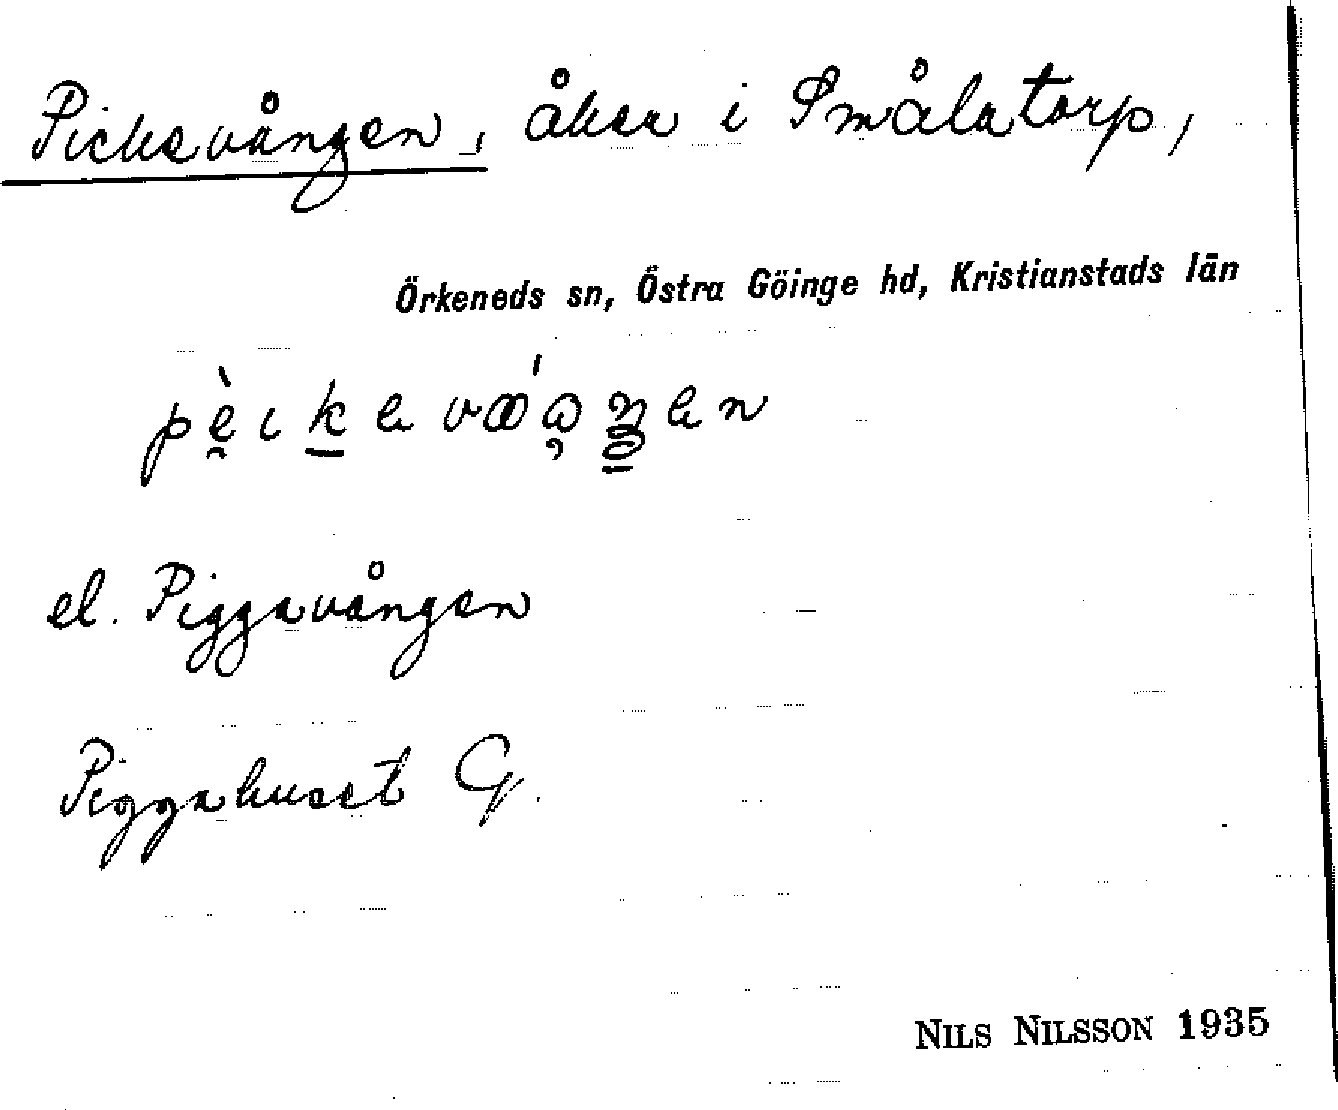 Pickevången, åker i Smålatorp,
Örkeneds sn, Östra Göinge hd, Kristianstads län
el. Piggavången
Piggahuset G.
NILS NILSSON 1935